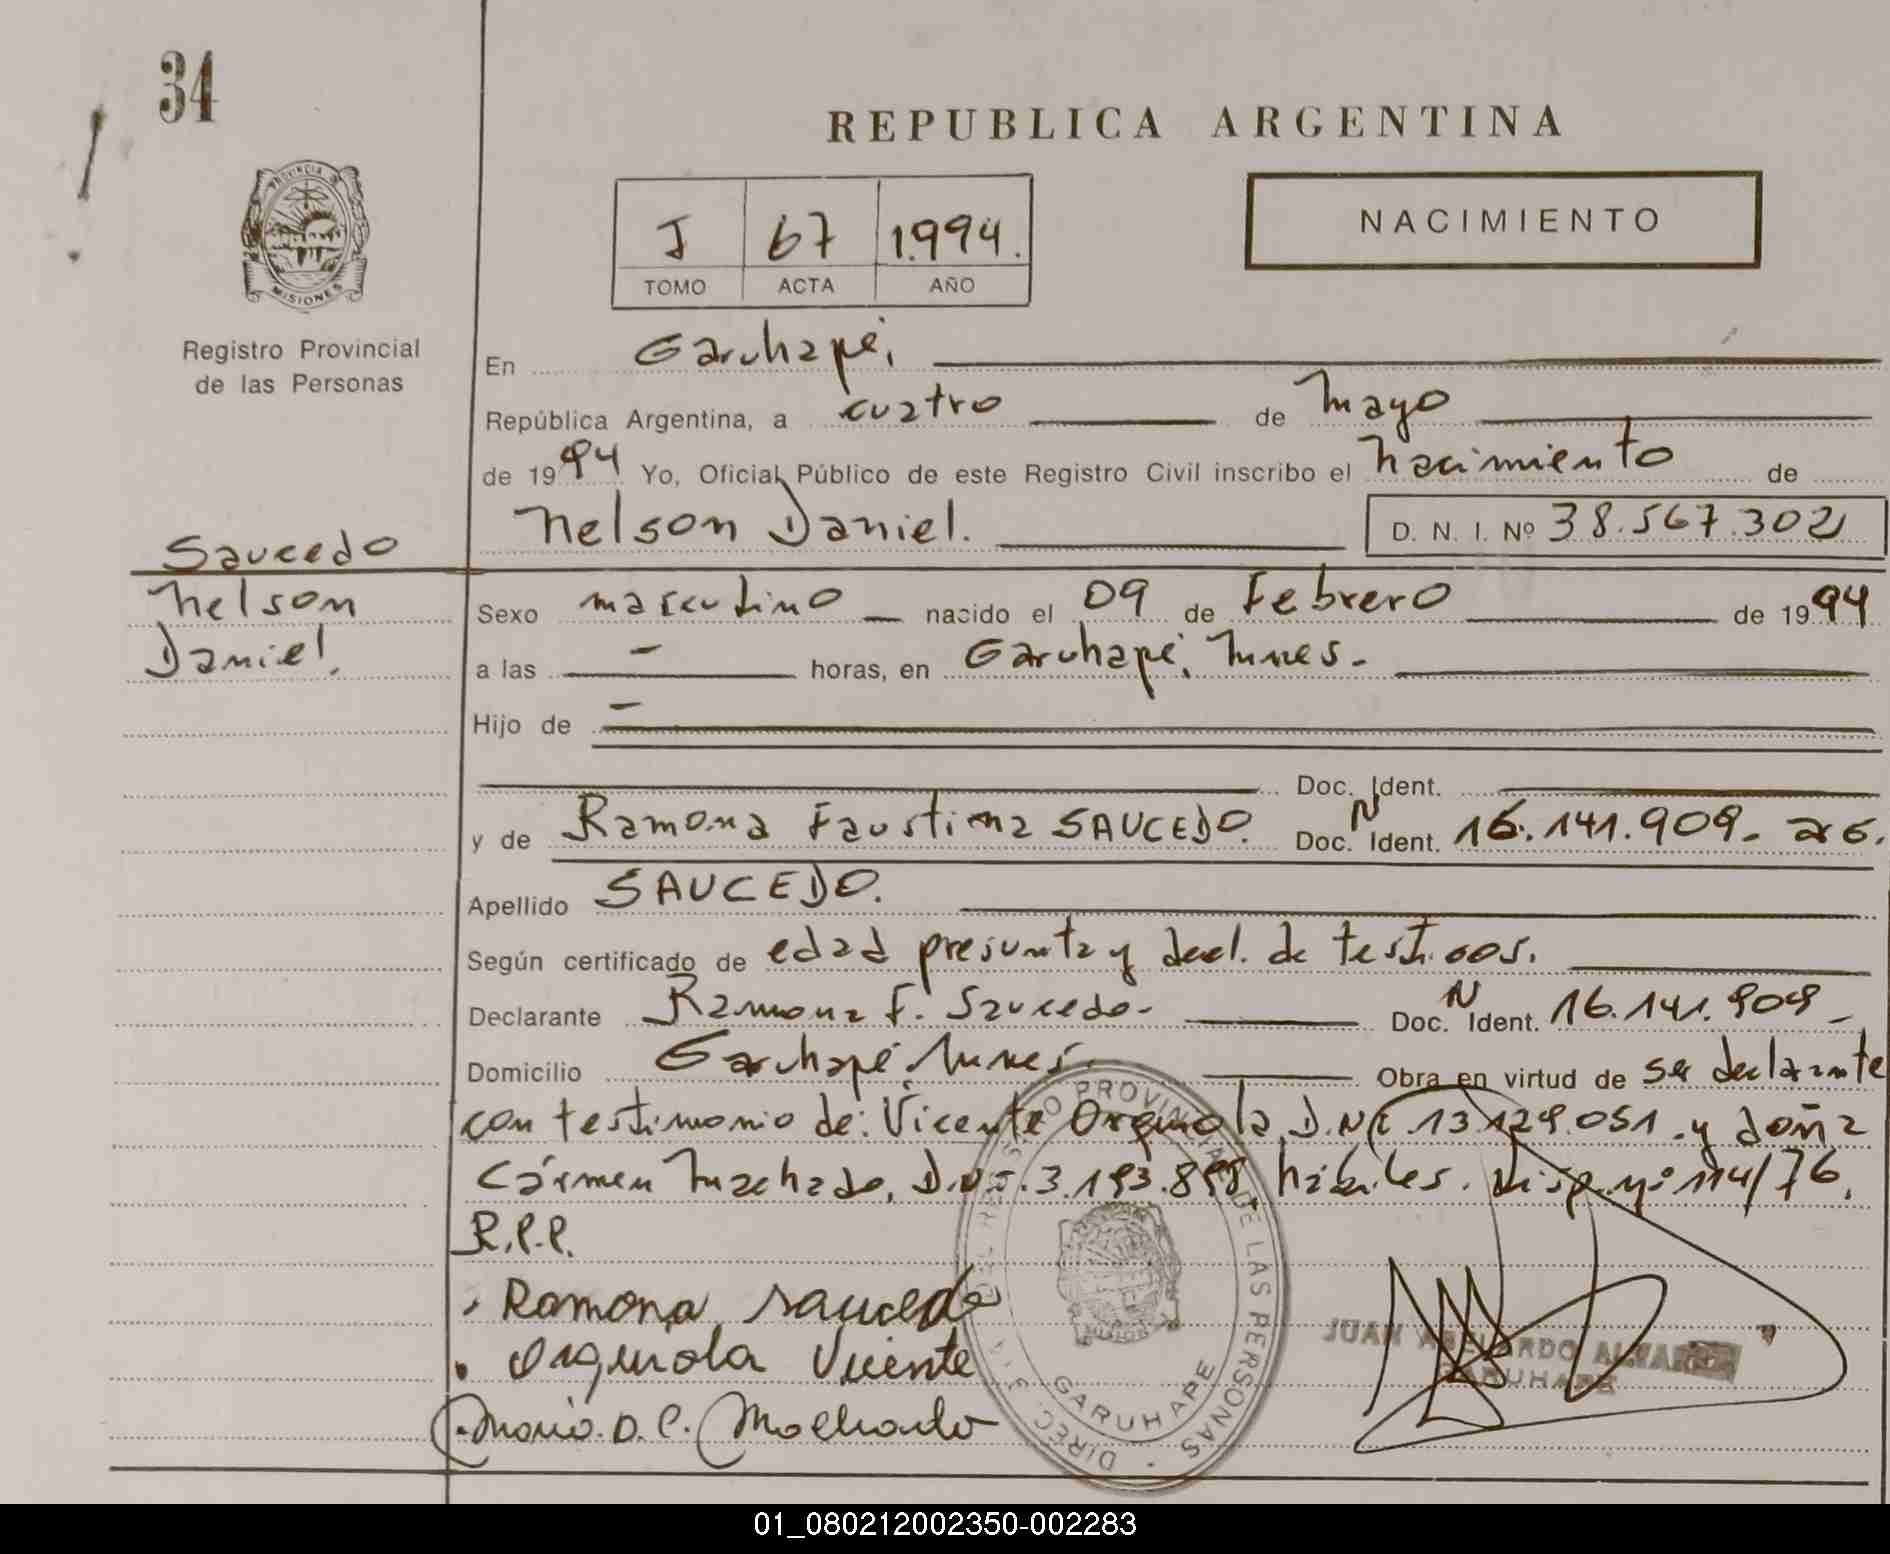 34
REPUBLICA ARGENTINA
PROVINCIA D
MISIONES
J 67 1.994.
TOMO ACTA AÑO
NACIMIENTO
Registro Provincial
de las Personas
En Garuhapé,
República Argentina, a cuatro de Mayo
de 1994 Yo, Oficial Público de este Registro Civil inscribo el Nacimiento de
Nelson Daniel. D. N. I. Nº 38.567.302
Saucedo
Nelson
Daniel.
Sexo masculino nacido el 09 de Febrero de 1994
a las - horas, en Garuhapé,
Hijo de -
Doc. Ident.
y de Ramona Faustina SAUCEDO. Doc. N Ident. 16.141.909.
Apellido SAUCEDO.
Según certificado de edad presunta y decl. de testigos.
Declarante Ramona F. Saucedo. Doc. N Ident. 16.141.909
Domicilio Garuhapé Obra en virtud de ser declarante
con testimonio de: Vicente D.N.I. 13.129.051. y doña
Cármen Machado, D.N.I. 3.193.898, hábiles. Disp. Nº 114/76.
R.P.P.
Ramona Saucedo
Vicente
Maria D. C. Machado
DIREC. GRAL. DEL REGISTRO PROVINCIAL DE LAS PERSONAS
GARUHAPE
JUAN
GARUHAPE
01_080212002350-002283